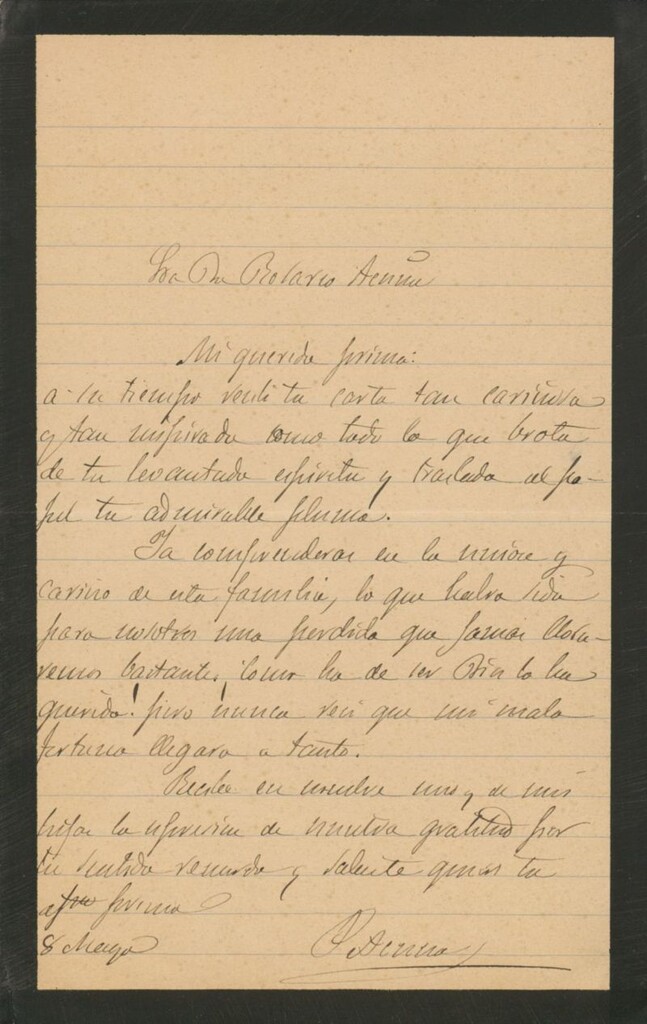 Sra Da Rosario Acuña
Mi querida prima:
a su tiempo recibi tu carta tan cariñosa
y tan inspirada como todo lo que brota
de tu levantado espiritu y traslada al pa-
pel tu admirable pluma.
Ya comprenderas en la union y
cariño de esta familia, lo que habra sido
para nosotros una perdida que jamas llora-
remos bastante; ¡como ha de ser Dios lo ha
querido! pero nunca crei que mi mala
fortuna llegara a tanto.
Recibe en nombre mio y de mis
hijas la espresion de nuestra gratitud por
tu sentido recuerdo y
tu
afmo primo
8 Mayo
Acuña